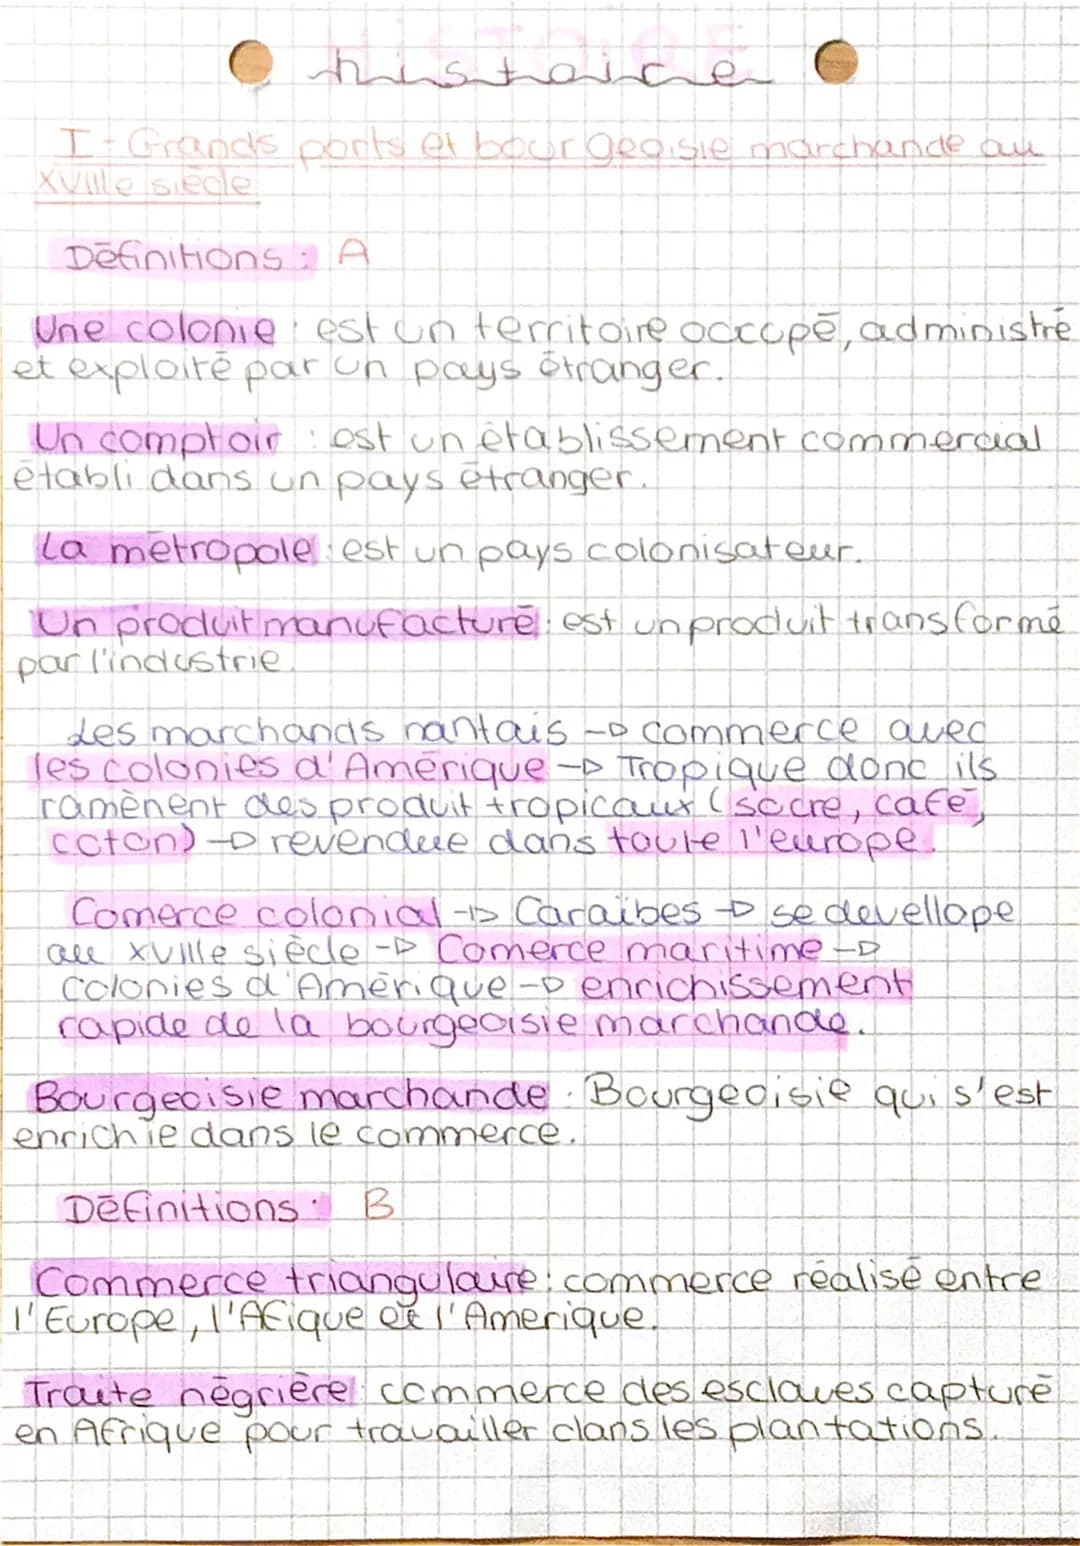 HISTOIRE
histoire
I - Grands ports et bourgeoisie marchande au
XVIIIe siècle
Définitions : A
Une colonie : est un territoire occupé, administré
et exploité par un pays étranger.
Un comptoir : est un établissement commercial
établi dans un pays étranger.
La métropole : est un pays colonisateur.
Un produit manufacturé : est un produit transformé
par l'industrie.
Les marchands nantais → commerce avec
les colonies d'Amérique → Tropique donc ils
ramènent des produit tropicaux (sucre, café,
coton) → revendue dans toute l'europe.
Comerce colonial → Caraïbes → se devellope
au XVIIIe siècle → Comerce maritime →
colonies d'Amérique → enrichissement
rapide de la bourgeoisie marchande.
Bourgeoisie marchande : Bourgeoisie qui s'est
enrichie dans le commerce.
Définitions : B
Commerce triangulaire : commerce réalisé entre
l'Europe, l'Afique et l'Amerique.
Traite négrière : commerce des esclaves capturé
en Afrique pour travailler dans les plantations.